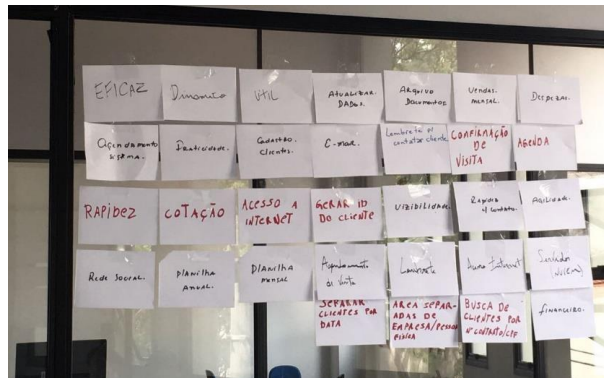 EFICAZ
Dinamico
UtiL
AtuaLizAR
DADos.
ARquivo
Documentos.
Vendas.
mensAL.
Despesas.
Agendamento
Praticidade.
Cadastro
Clientes.
E-mail.
Lembrete p/
contatar cliente
CONFIRMAÇÃO
DE
VISITA
AGENDA
RAPIDEZ
COTAÇÃO
ACESSO A
INTERNET
GERAR ID
DO CLIENTE
ViZiBiLiDADE.
Rapidez
AgiLidade.
Rede Social.
PLANiLhA
ANUAL.
PLANiLhA
mensAL
Agendamento
de Visita
Lembrete
Internet
Servidor
(Nuvem)
SEPARAR
CLIENTES POR
DATA
AREA SEPAR-
ADAS DE
EMPRESA/PESSOA
FISICA
BUSCA DE
CLIENTES POR
Nº CONTRATO/CPF
FinANceiRo.